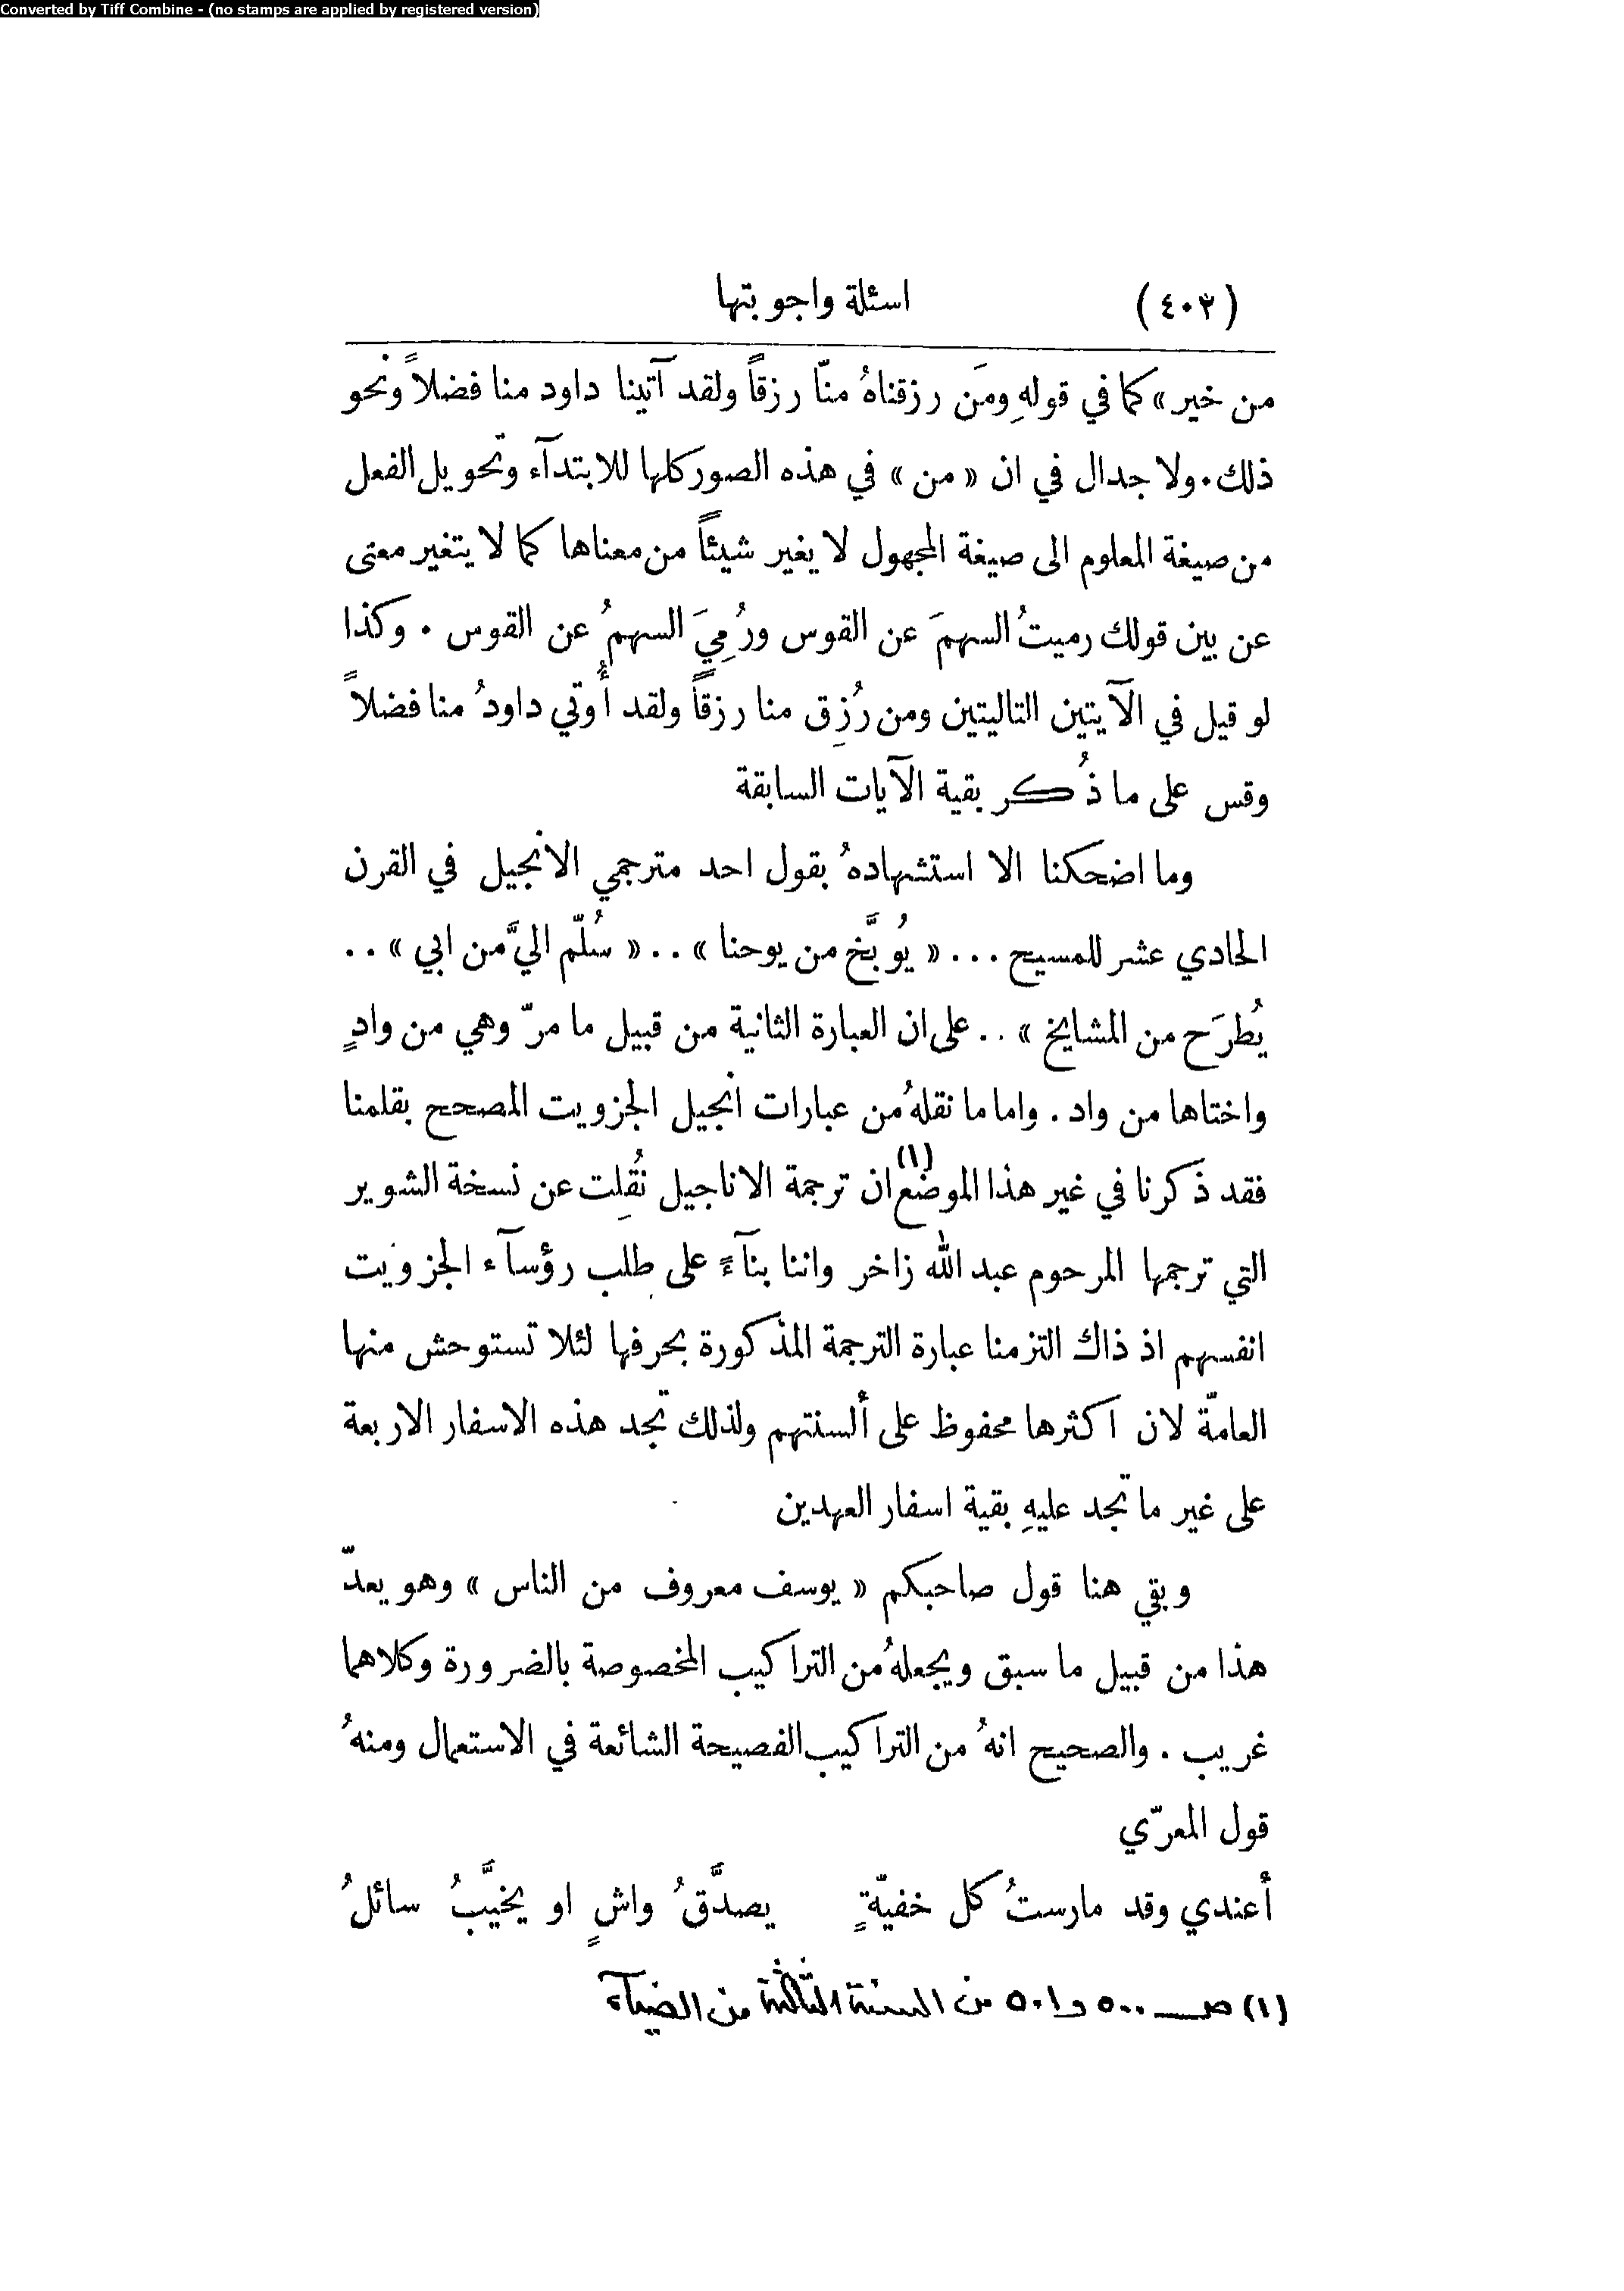 Converted by Tiff Combine - (no stamps are applied by registered version)
(٤٠٣) اسئلة واجوبتها
من خير» كما في قولهِ ومَن رزقناهُ منّا رزقاً ولقد آتينا داود منا فضلاً ونحو
ذلك. ولا جدال في ان «من» في هذه الصور كلها للابتدآء وتحويل الفعل
من صيغة المعلوم الى صيغة المجهول لا يغير شيئاً من معناها كما لا يتغير معنى
عن بين قولك رميتُ السهمَ عن القوس ورُمِيَ السهمُ عن القوس. وكذا
لو قيل في الآيتين التاليتين ومن رُزِق منا رزقاً ولقد أُوتي داودُ منا فضلاً
وقس على ما ذُكر بقية الآيات السابقة
وما اضحكنا الا استشهادهُ بقول احد مترجمي الانجيل في القرن
الحادي عشر للمسيح ... «يُوبَّخ من يوحنا» .. «سُلّم اليَّ من ابي» ..
يُطرَح من المشايخ» .. على ان العبارة الثانية من قبيل ما مرّ وهي من وادٍ
واختاها من واد. واما ما نقلهُ من عبارات انجيل الجزويت المصحح بقلمنا
فقد ذكرنا في غير هذا الموضع (١) ان ترجمة الاناجيل نُقِلت عن نسخة الشوير
التي ترجمها المرحوم عبد الله زاخر واننا بنآءً على طلب رؤسآء الجزويت
انفسهم اذ ذاك التزمنا عبارة الترجمة المذكورة بحرفها لئلا تستوحش منها
العامّة لان اكثرها محفوظ على ألسنتهم ولذلك تجد هذه الاسفار الاربعة
على غير ما تجد عليهِ بقية اسفار العهدين
وبقي هنا قول صاحبكم «يوسف معروف من الناس» وهو يعدّ
هذا من قبيل ما سبق ويجعلهُ من التراكيب المخصوصة بالضرورة وكلاهما
غريب. والصحيح انهُ من التراكيب الفصيحة الشائعة في الاستعمال ومنهُ
قول المعرّي
أعندي وقد مارستُ كل خفيّةٍ يصدَّقُ واشٍ او يخيَّبُ سائلُ
(١) صـ ٥٠٠ و٥٠١ من السنة الثالثة من الضيآء